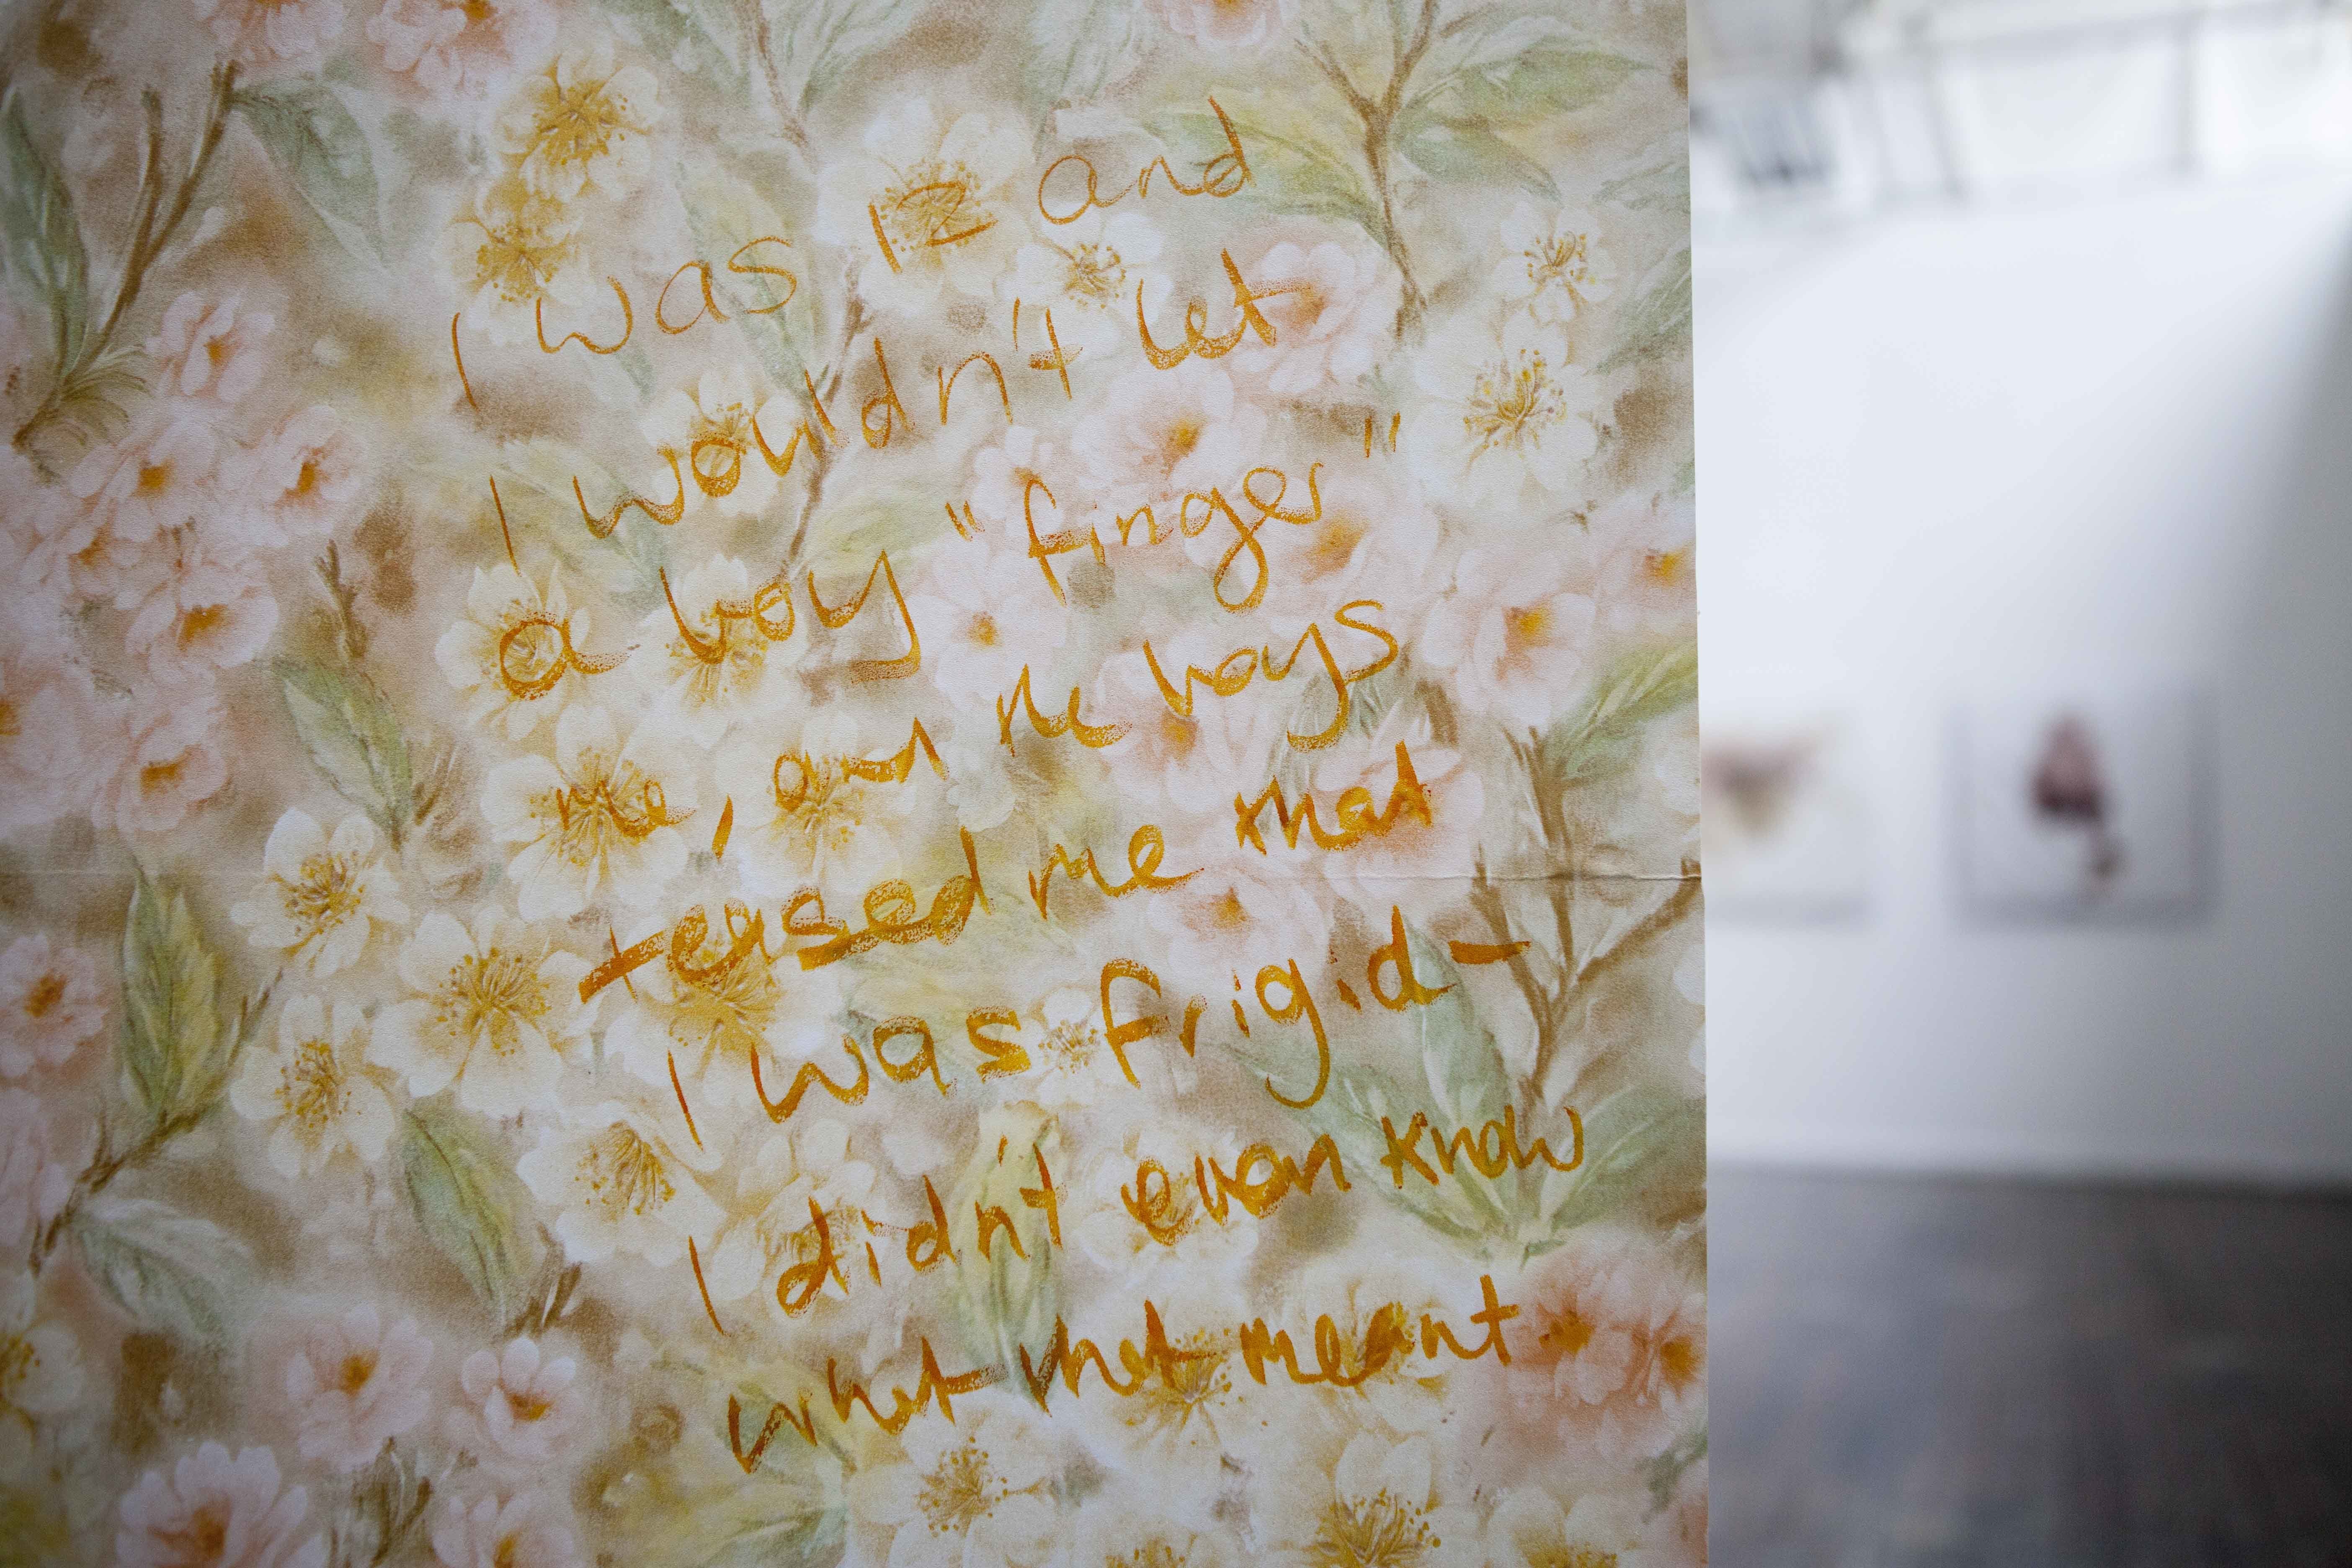 I was 12 and
I wouldn't let
a boy "finger"
me, and the boys
teased me that
I was frigid -
I didn't even know
what that meant